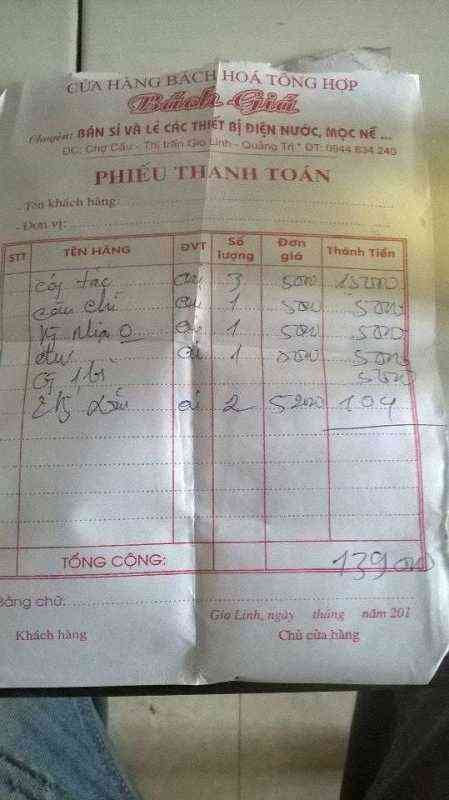 CỬA HÀNG BÁCH HOÁ TỔNG HỢP
Bách Giá
Chuyên: BÁN SỈ VÀ LẺ CÁC THIẾT BỊ ĐIỆN NƯỚC, MỘC NỀ ...
ĐC: Chợ Cầu - Thị trấn Gio Linh - Quảng Trị * ĐT: 0944 834 240
PHIẾU THANH TOÁN
- Tên khách hàng
- Đơn vị:
STT TÊN HÀNG ĐVT Số lượng Đơn giá Thành Tiền
Công tắc cái 3 5000 15000
cầu chì cái 1 5000 5000
1 5000 5000
1 5000 5000
5000
2 52000 104
TỔNG CỘNG: 139000
Bằng chữ:
Gio Linh, ngày tháng năm 201
Khách hàng Chủ cửa hàng